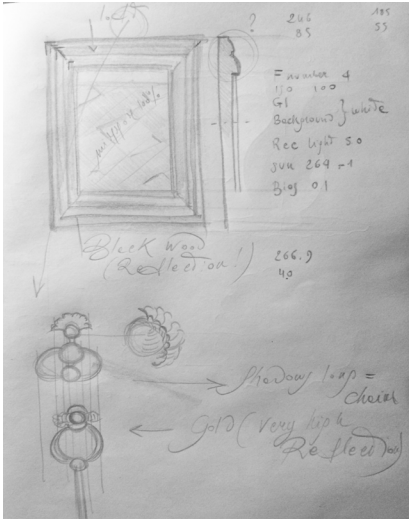 ?
246
85
185
55
F number 4
ISO 100
GI
Background } white
Rec light 50
sun 264 -1
Bias 01
Black Wood
(Reflection!)
266.9
40
Shadows loop =
chains
Gold (very high
Reflection)